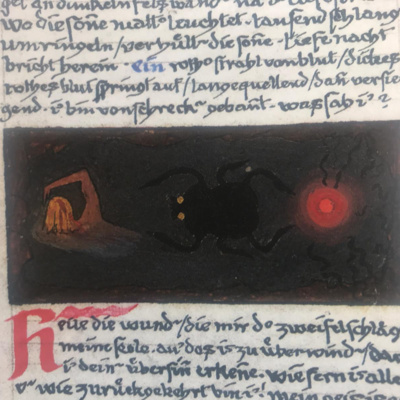 an dunkeln felswänd
wo die soñe matt leuchtet. tausend schlang
umringeln/verhüllt die soñe. tiefe nacht
bricht herein. ein roth strahl von blut/dickes
rothes blut springt auf/lange quellend/dañ versie
gend. i bin von schreck gebañt. was sah i?
Heile die wund/die mir d zweifel schläg
meine seele. au das ist zu überwind/das
i dein übersiñ erkeñe. wie fern ist alle
u wie zurückgekehrt bin i! mein geist